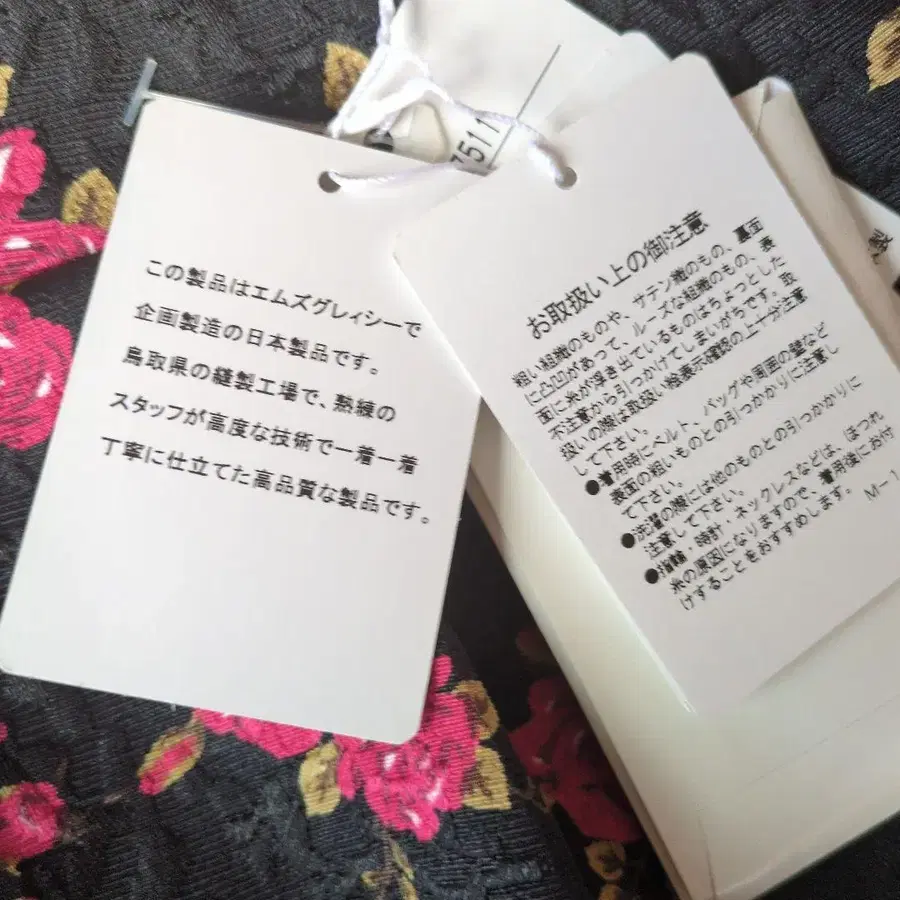 この製品はエムズグレィシーで
企画製造の日本製品です。
鳥取県の縫製工場で、熟練の
スタッフが高度な技術で一着一着
丁寧に仕立てた高品質な製品です。
7511
お取扱い上の御注意
粗い組織のものや、サテン織のもの、裏面
に凸凹があって、ルーズな組織のもの、表
面に糸が浮き出ているものはちょっとした
不注意から引っかけてしまいがちです。取
扱いの際は取扱い絵表示確認の上十分注意
して下さい。
●着用時にベルト、バッグや周囲の壁など
表面の粗いものとの引つかかりに注意し
て下さい。
●洗濯の際には他のものとの引つかかりに
注意して下さい。
●指輪・時計・ネックレスなどは、ほつれ
糸の原因になりますので、着用後にお付
けすることをおすすめします。 M−1
製